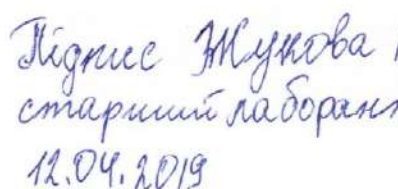 Підпис Жукова
старший лаборант
12.04.2019